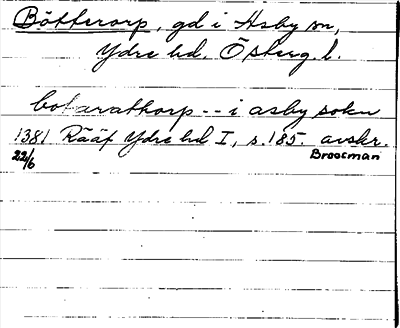 Bötterorp, gd i Asby sn,
Ydre hd. Österg. l.
botarathorp -- i asby sokn
1381 Rääf Ydre hd I, s. 185. avskr.
22/6 Broocman